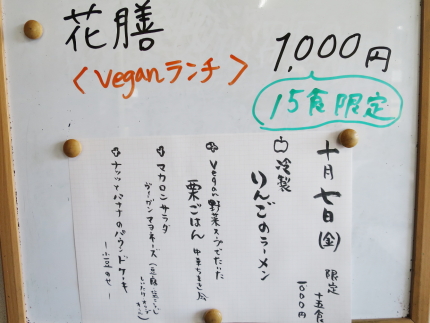 花膳
1,000円
〈Veganランチ〉
15食限定
十月七日(金)
限定 十五食
1000円
冷製
りんごのラーメン
Vegan野菜スープでたいた
栗ごはん 中華ちまき風
マカロンサラダ
ヴィーガンマヨネーズ
ナッツとバナナのパウンドケーキ